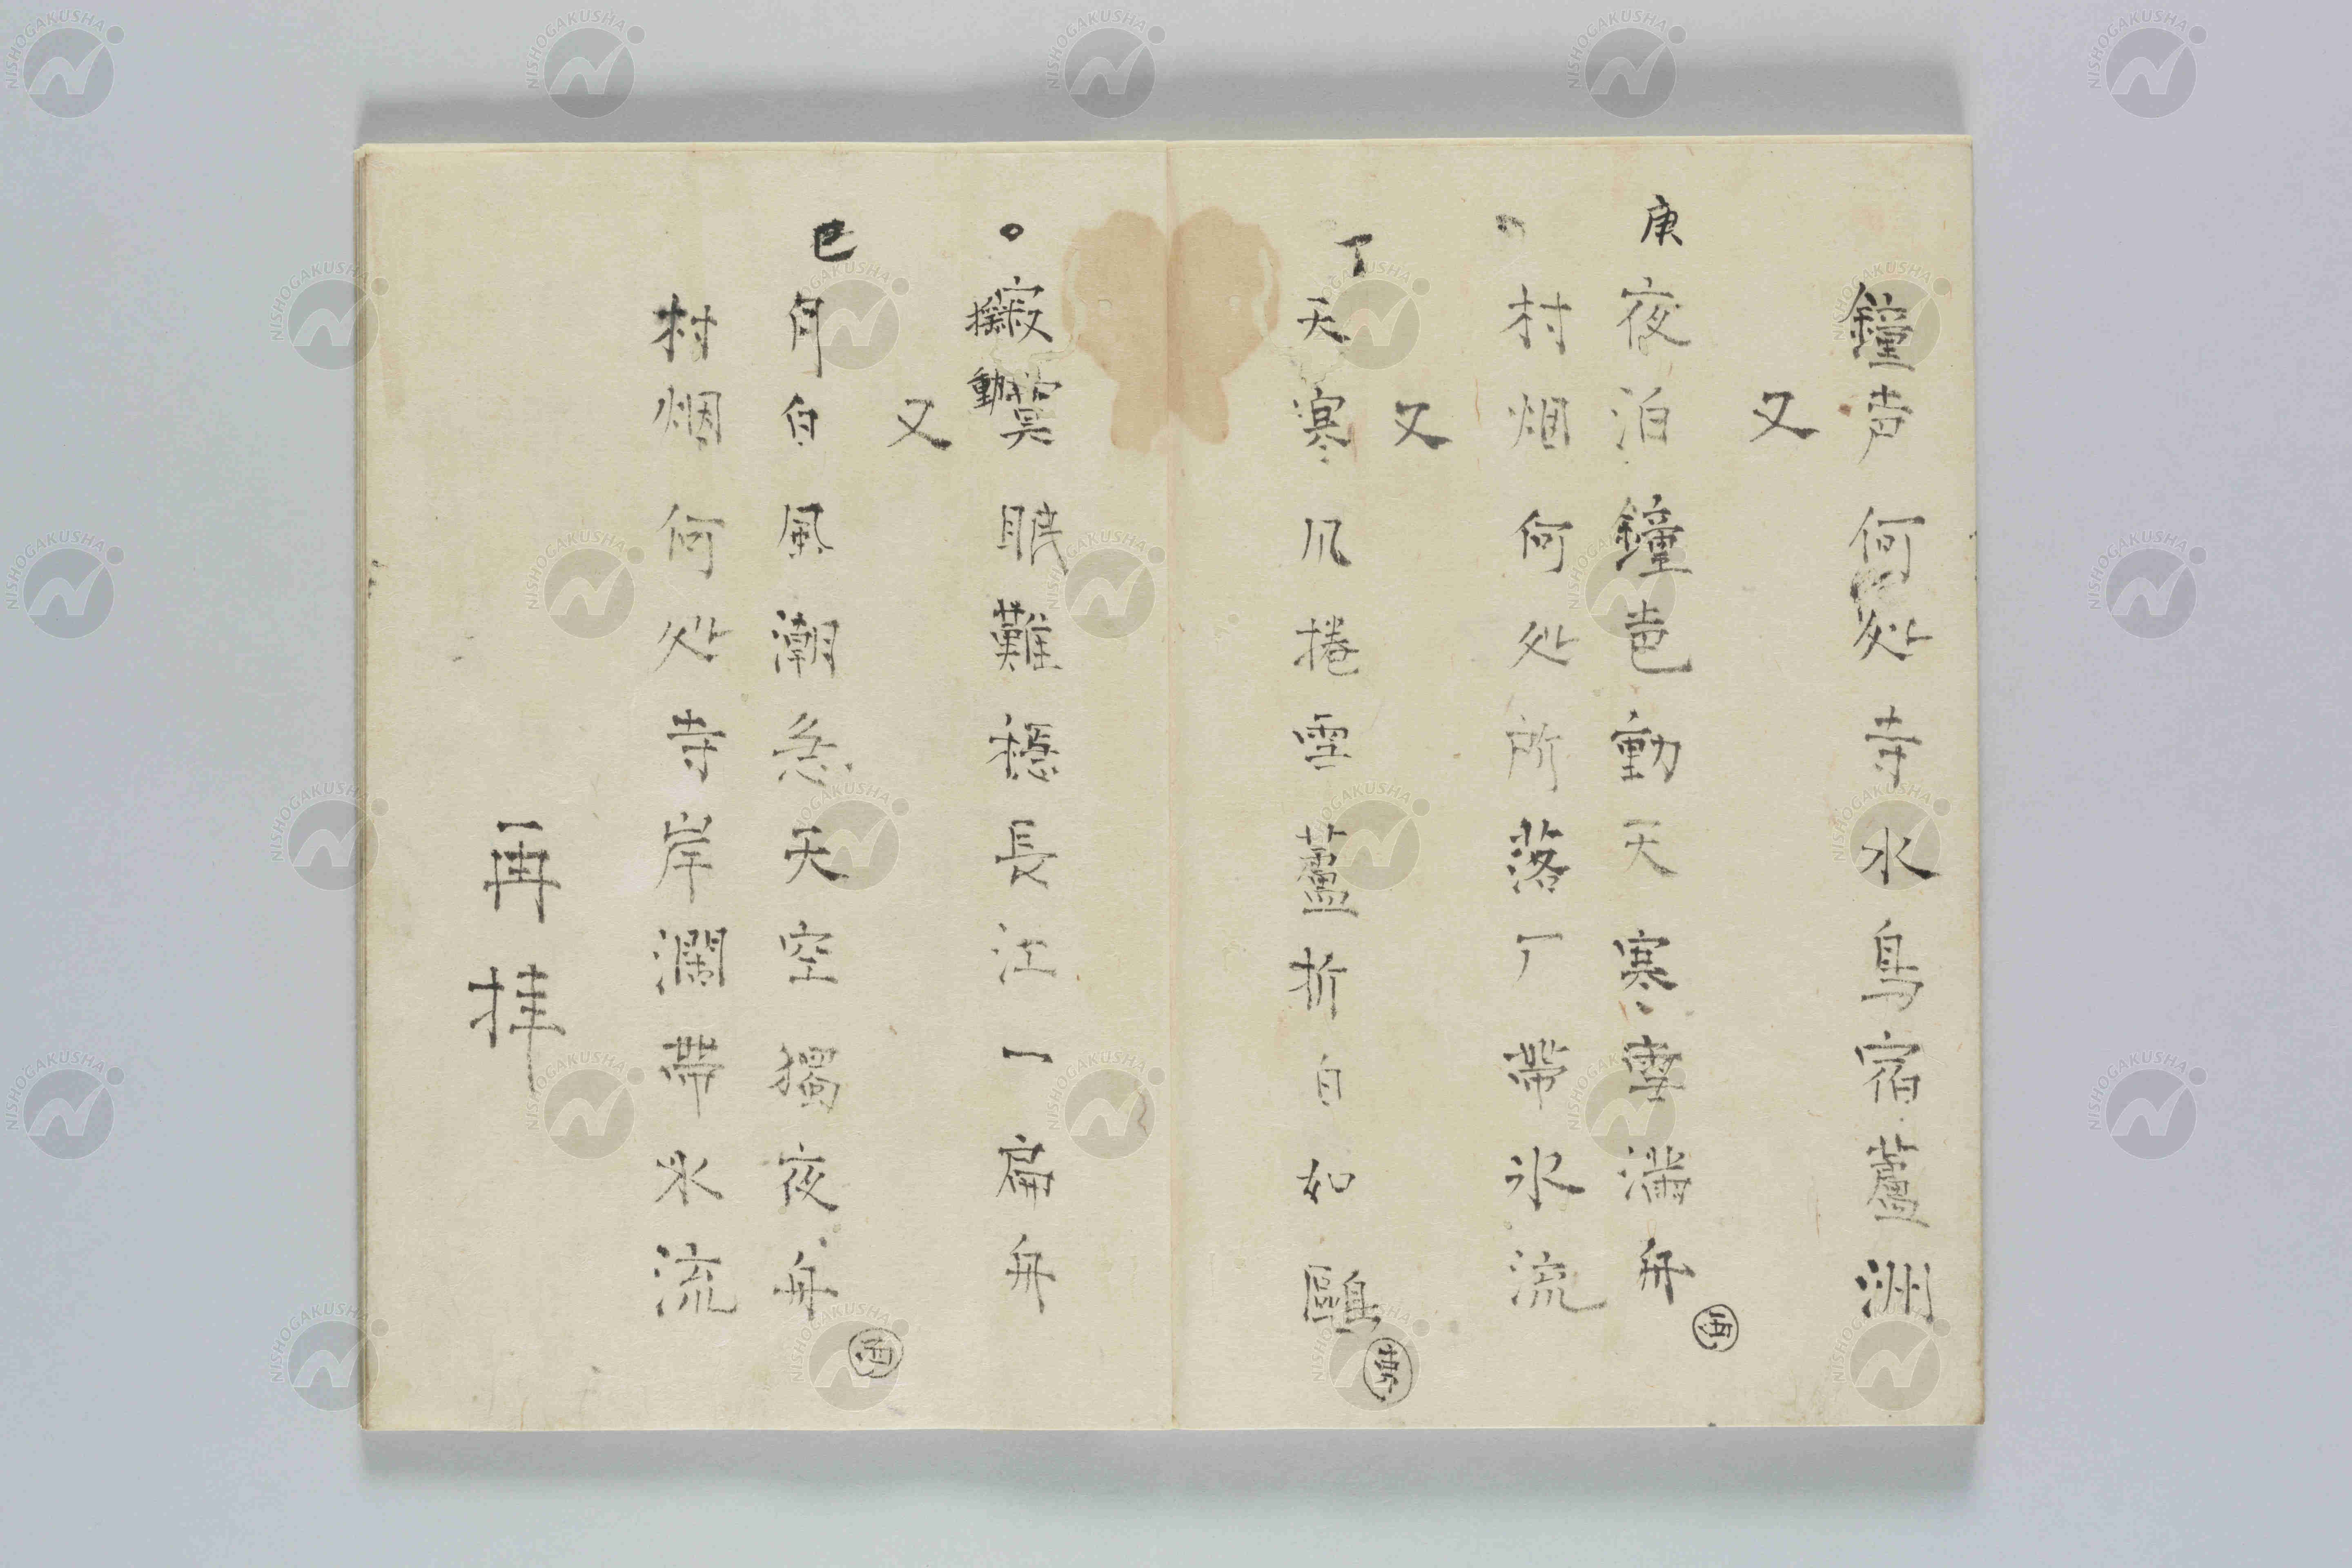 鐘声何処寺水鳥宿蘆洲
又
庚
夜泊鐘声動天寒雪満舟
酉
村烟何処所落厂帯氷流
又
丁
天寒凡捲雪蘆折白如鷗
寂寞眠難穏長江一扁舟
動
又
巳
月白風潮急天空獨夜舟
酒
村烟何処寺岸瀾帯氷流
再拝
NISHOGAKUSHA